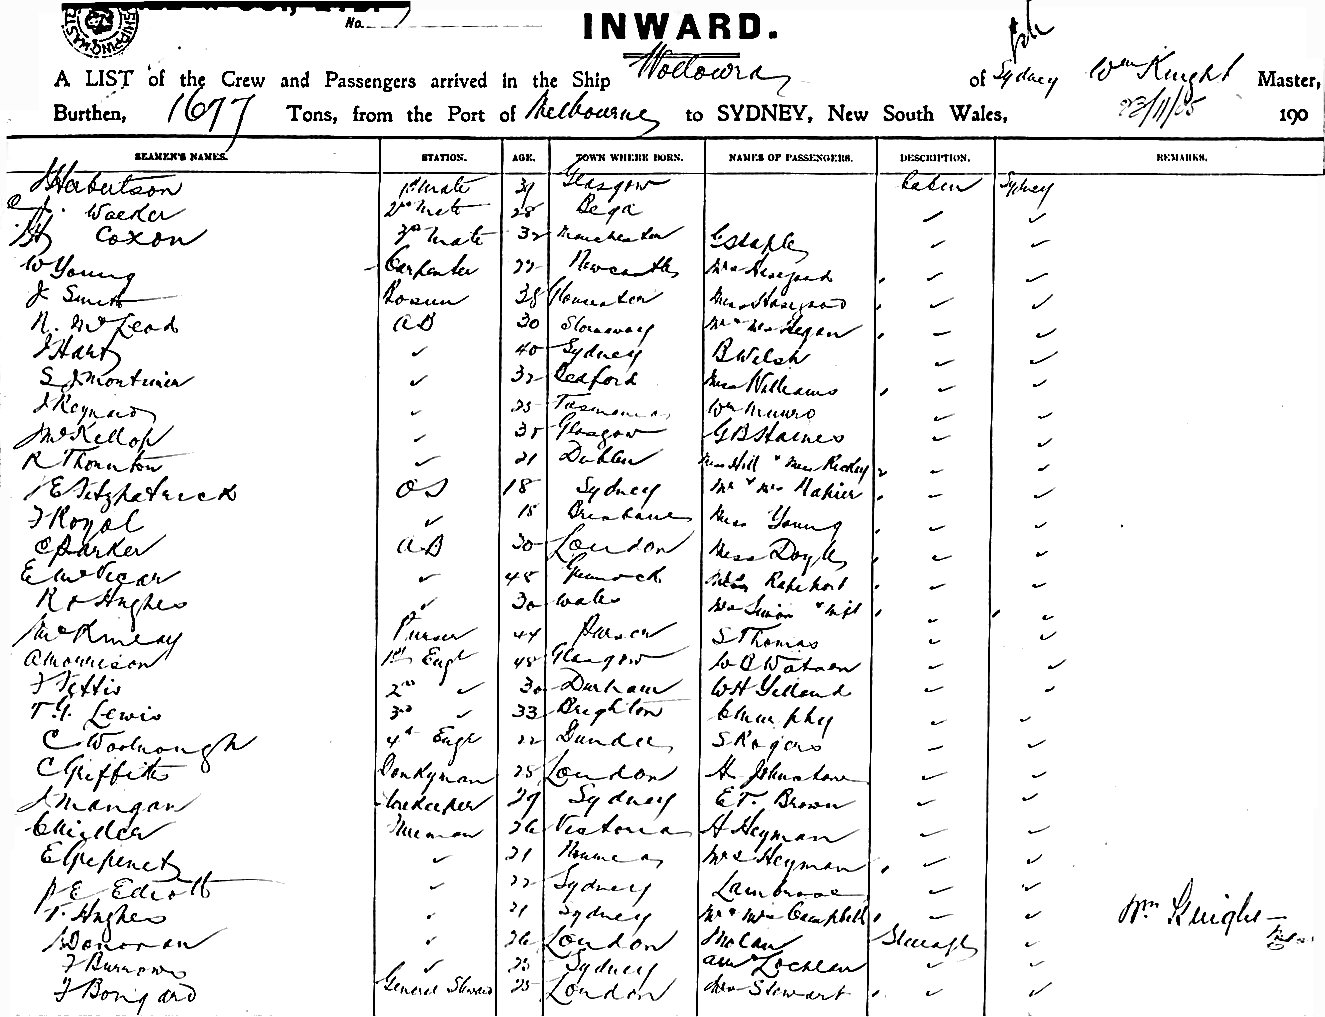 No.
INWARD.
A LIST of the Crew and Passengers arrived in the Ship Wollowra of Sydney Wm Knight Master,
Burthen, 1677 Tons, from the Port of Melbourne to SYDNEY, New South Wales, 23/11/05 190
SEAMEN'S NAMES. STATION. AGE. TOWN WHERE BORN. NAMES OF PASSENGERS. DESCRIPTION. REMARKS.
J Herbertson 1st Mate 39 Glasgow Cabin Sydney
Walker 2nd Mate 28 Bega
Coxon 3rd Mate 32 Manchester C Staples
W Young Carpenter 22 Newcastle Mrs
J Smith Bosun 38 Miss
N. McLeod AB 30 Stornoway Mr & Mrs Hegan
J Hart 40 Sydney B Welsh
S J Mortimer 32 Bedford Miss Williams
J Reynard 25 Tasmania Wm Munro
McKellop Glasgow G B Haines
R Thornton 21 Dublin Miss Hill & Miss
E Fitzpatrick OS 18 Sydney Mr & Mrs
F Royal 18 Brisbane Miss Young
C Parker AB 30 London Miss Doyle
E McVicar 48 Greenock
R O Hughes 30 Wales Mrs Simon &
Purser 44 S Thomas
A Morrison 1st Engr 48 Glasgow W C Watson
F Pettis 2nd 30 Durham W H Yelland
T. G. Lewis 3rd 33 Brighton C Murphy
C Woolnough 4th Engr 22 Dundee S Rogers
C Griffiths Donkyman 28 London H Johnstone
J Mangan Storekeeper 29 Sydney E T. Brown
Fireman 26 Victoria H Heyman
E 21 Noumea Mrs Heyman
E Elliott 22 Sydney Lambrose
T. Hughes 21 Sydney Mr & Mrs Campbell Wm Knight
Donovan 26 London Steerage
F Burrows 23 Sydney Lochlan
F Bongard General Steward 25 London Mrs Stewart